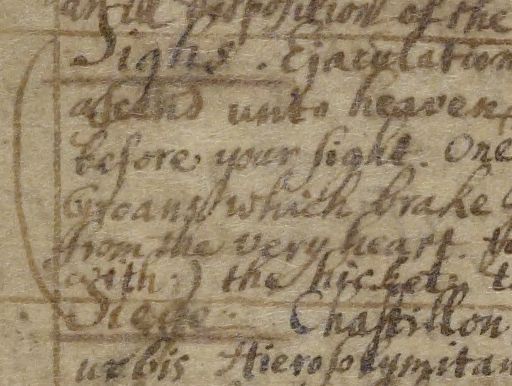 an ill disposition of the
Sighs. Ejaculation
ascend unto heaven
before your sight. One
Groans which brake
from the very heart. th
with:) the thicket t
Siege. Chastillon
urbis Hierosolymitan